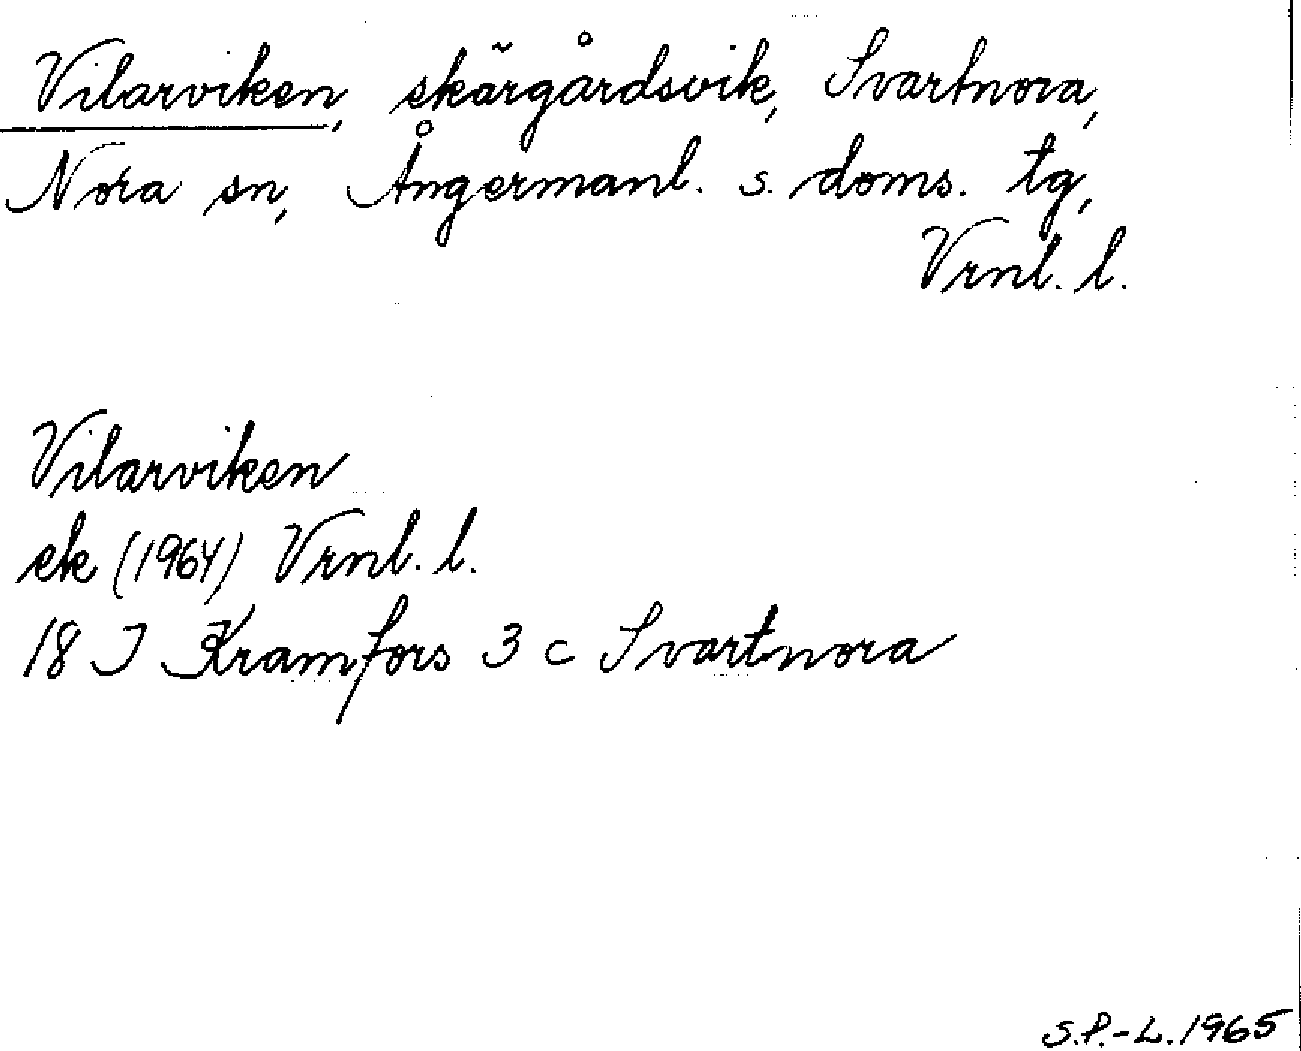 Vilarviken, skärgårdsvik, Svartnora,
Nora sn, Ångermanl. s. doms. tg,
Vrnl. l.
Vilarviken
ek (1964) Vrnl. l.
18 J Kramfors 3 c Svartnora
S.P.-L. 1965